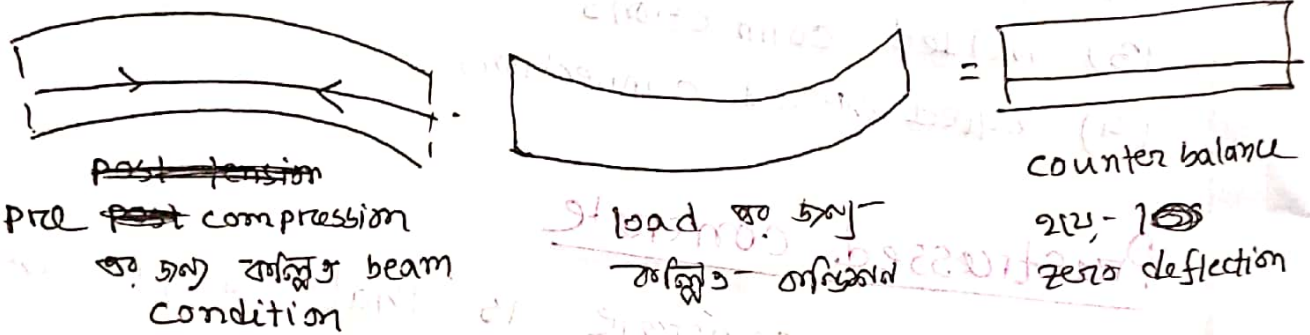 pre compression
এর জন্য কল্পিত beam
condition
load এর জন্য
কল্পিত কন্ডিশন
=
counter balance
হবে,-
zero deflection